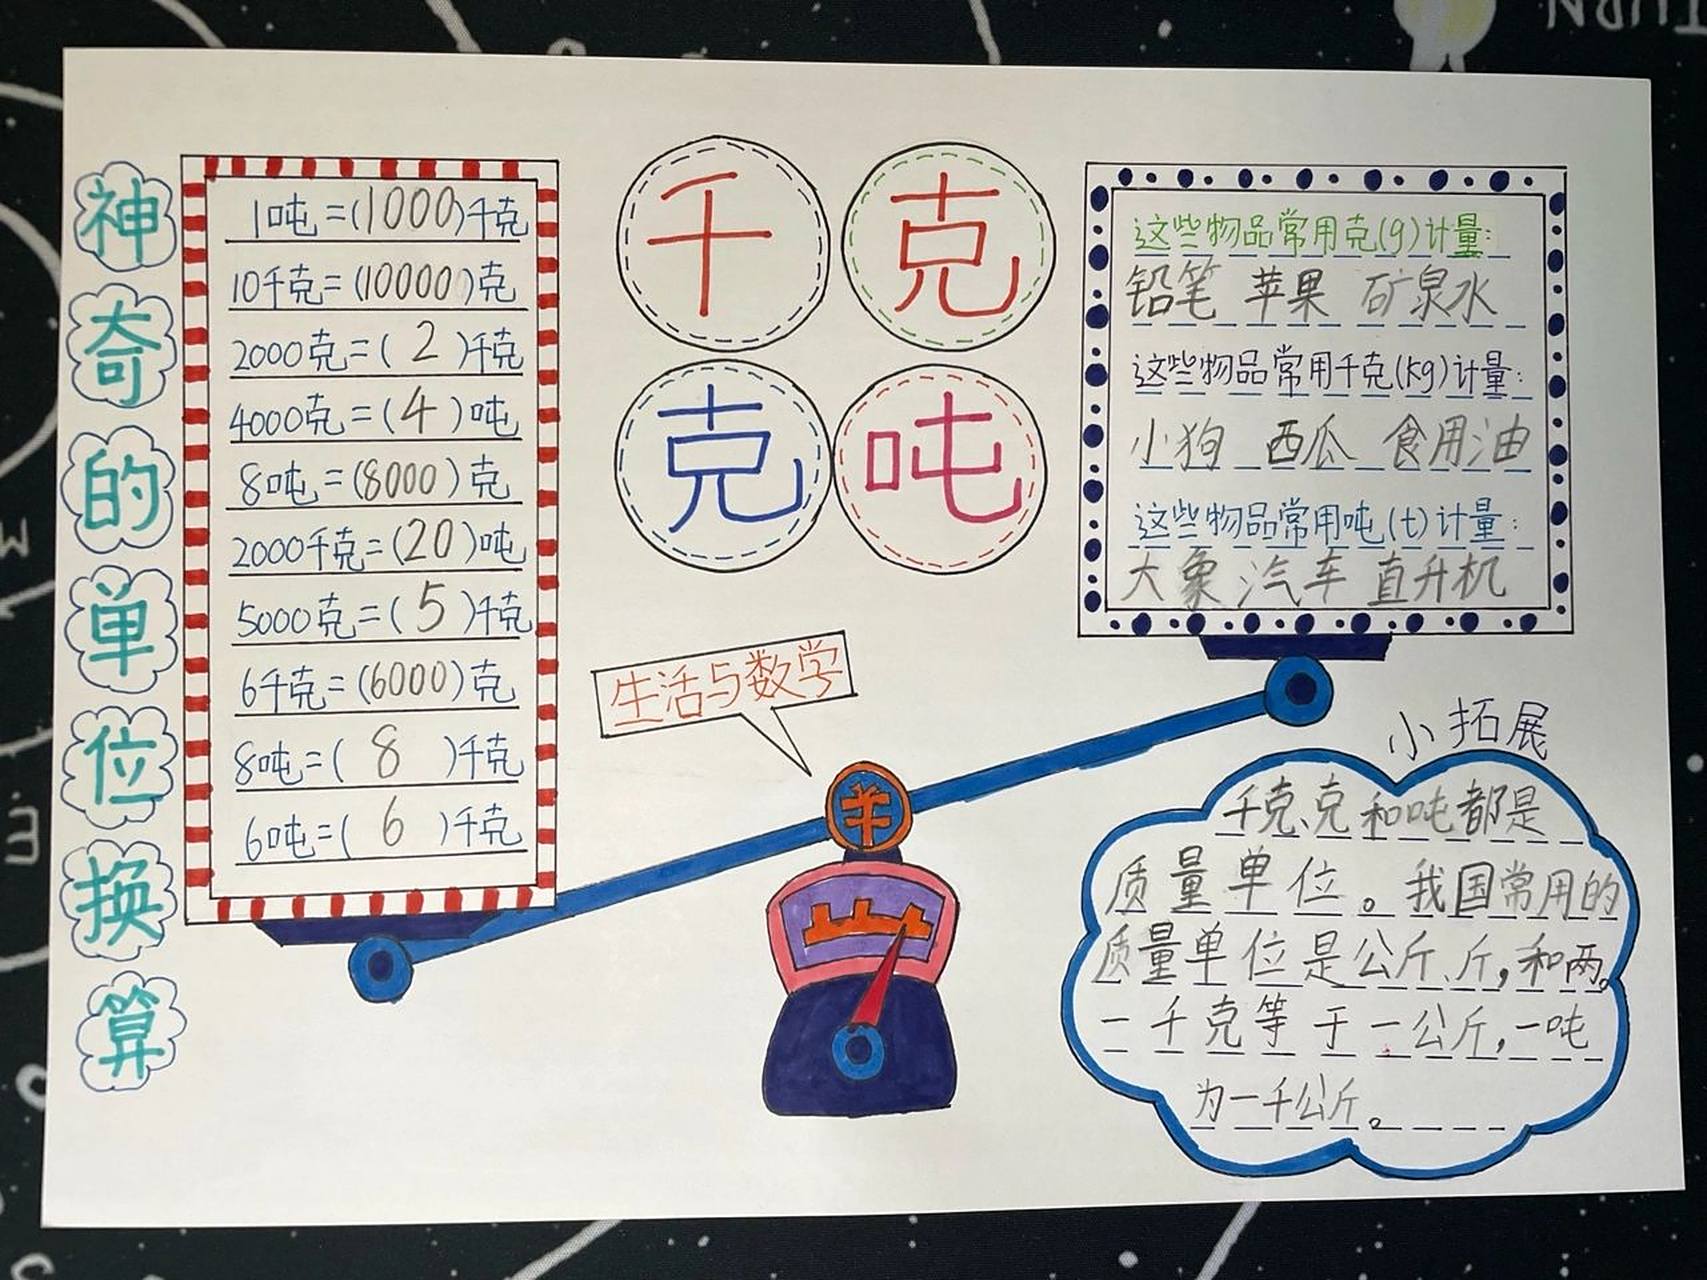 神奇的单位换算
1吨=(1000)千克
10千克=(10000)克
2000克=(2)千克
4000克=(4)吨
8吨=(8000)克
2000千克=(20)吨
5000克=(5)千克
6千克=(6000)克
8吨=(8)千克
6吨=(6)千克
千克
克吨
生活与数学
这些物品常用克(g)计量:
铅笔 苹果 矿泉水
这些物品常用千克(kg)计量:
小狗 西瓜 食用油
这些物品常用吨(t)计量:
大象 汽车 直升机
小拓展
千克、克和吨都是
质量单位。我国常用的
质量单位是公斤、斤,和两。
一千克等于一公斤,一吨
为一千公斤。
TURN